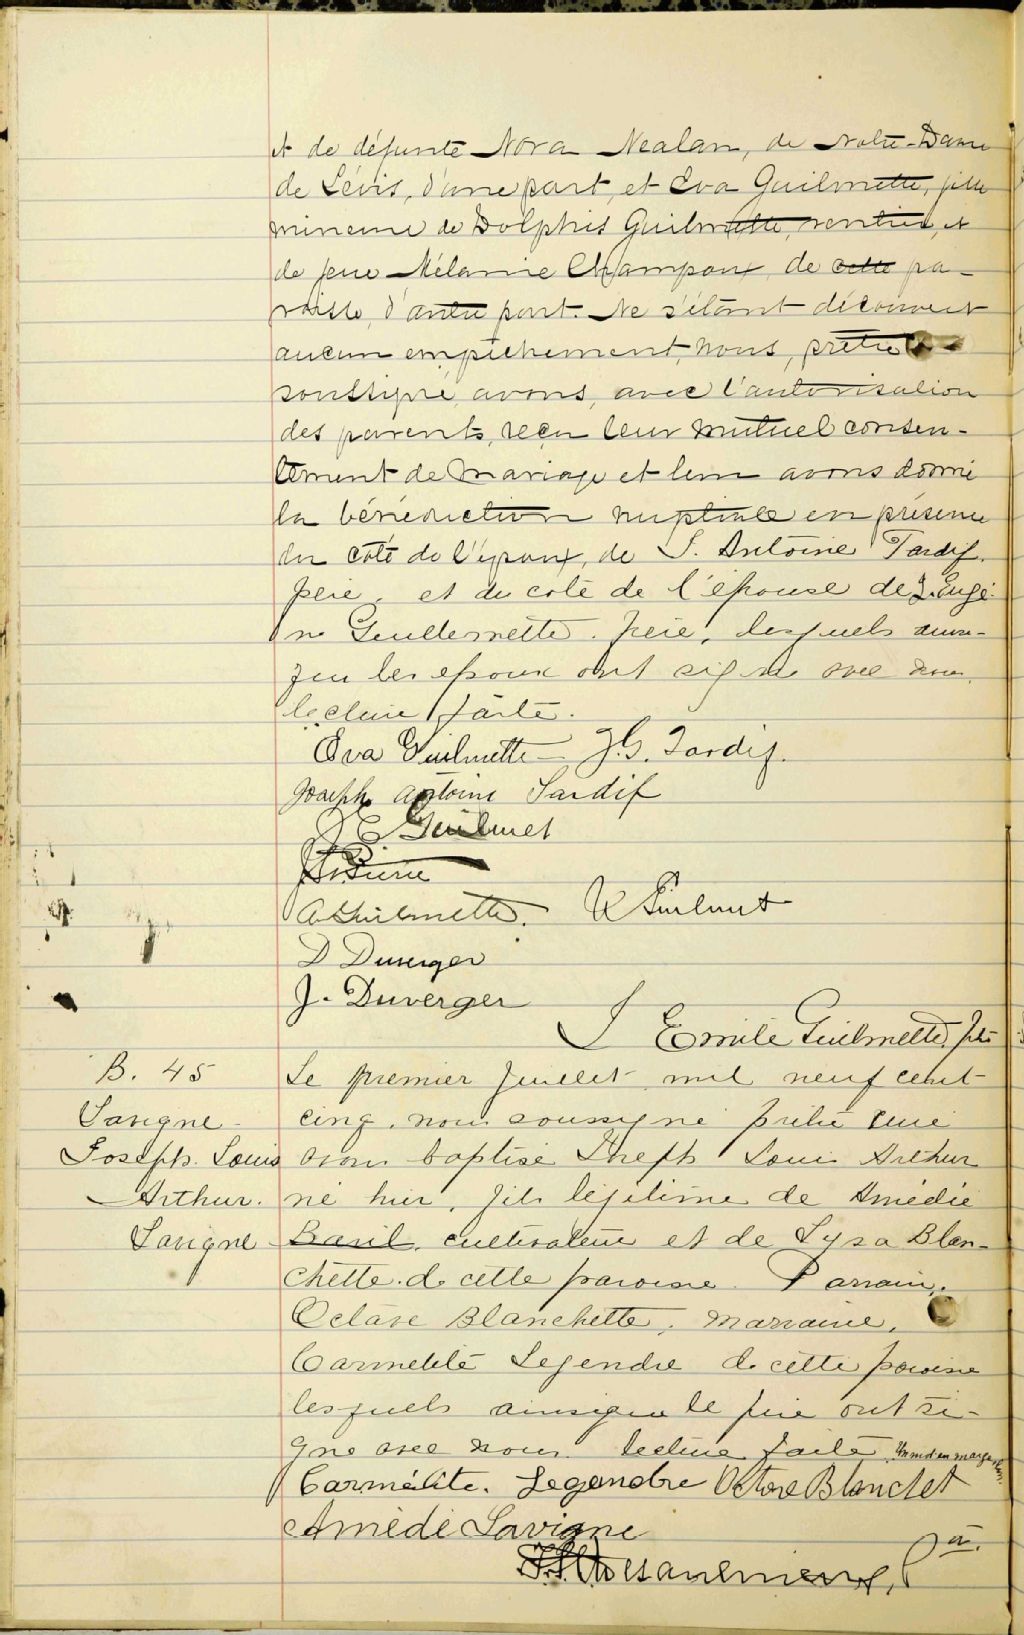 et de défunte Nora Nealan, de Notre-Dame
de Lévis, d'une part, et Eva Guilmette, fille
mineure de Dolphis Guilmette, rentier, et
de feue Mélanie Champoux, de cette pa-
roisse, d'autre part. Ne s'étant découvert
aucun empêchement, nous, prêtre
soussigné, avons, avec l'autorisation
des parents, reçu leur mutuel consen-
tement de mariage et leur avons donné
la bénédiction nuptiale en présence
du côté de l'époux, de J. Antoine Tardif.
père, et du coté de l'épouse de J. Eugè-
ne Guillemette. frère, lesquels ainsi-
que les epoux ont signé avec nous.
lecture faite.
Eva Guilmette - J.G. Tardif.
Joseph Antoine Tardif
J E Guilmet
J St Pierre
A Guilmette. Guilmet
D Duverger
J. Duverger
J Emile Guilmette, ptre
B. 45 Le premier Juillet mil neuf cent
Lavigne cinq, nous soussigné prêtre curé
Joseph. Louis avons baptisé Joseph Louis Arthur
Arthur. né hier, fils légitime de Amédée
Lavigne Basil, cultivateur et de Lysa Blan-
chette. de cette paroisse. Parrain,
Octave Blanchette, marraine,
Carmélité Legendre de cette paroisse
lesquels ainsi que le père ont si-
gné avec nous. lecture faite. Un mot en marge
Carmélite. Legendre Octave Blanchet
Amédé Lavigne
Ptre.